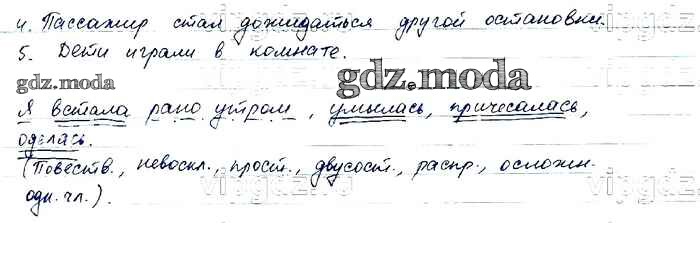 4. Пассажир стал дожидаться другой остановки.
5. Дети играли в комнате.
gdz.moda
gdz.moda
Я встала рано утром, умылась, причесалась,
оделась.
(Повеств., невоскл., прост., двусост., распр., осложн.
одн. чл.).